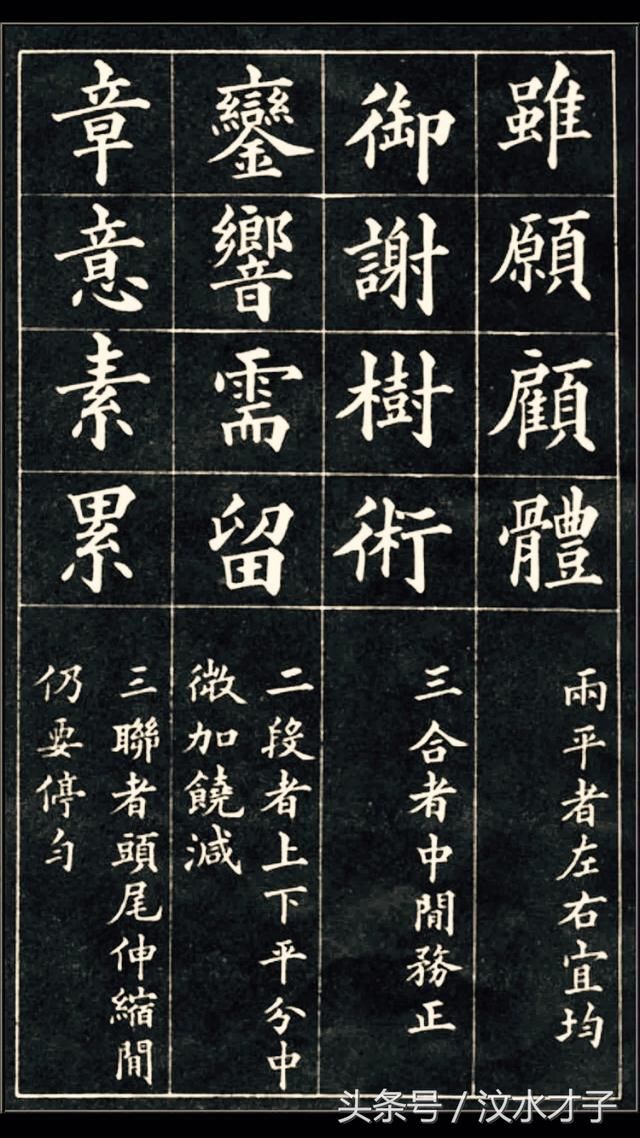 雖願顧體
兩平者左右宜均
御謝樹術
三合者中間務正
鑾響需留
二段者上下平分中
微加饒減
章意素累
三聯者頭尾伸縮間
仍要停勻
头条号 / 汶水才子